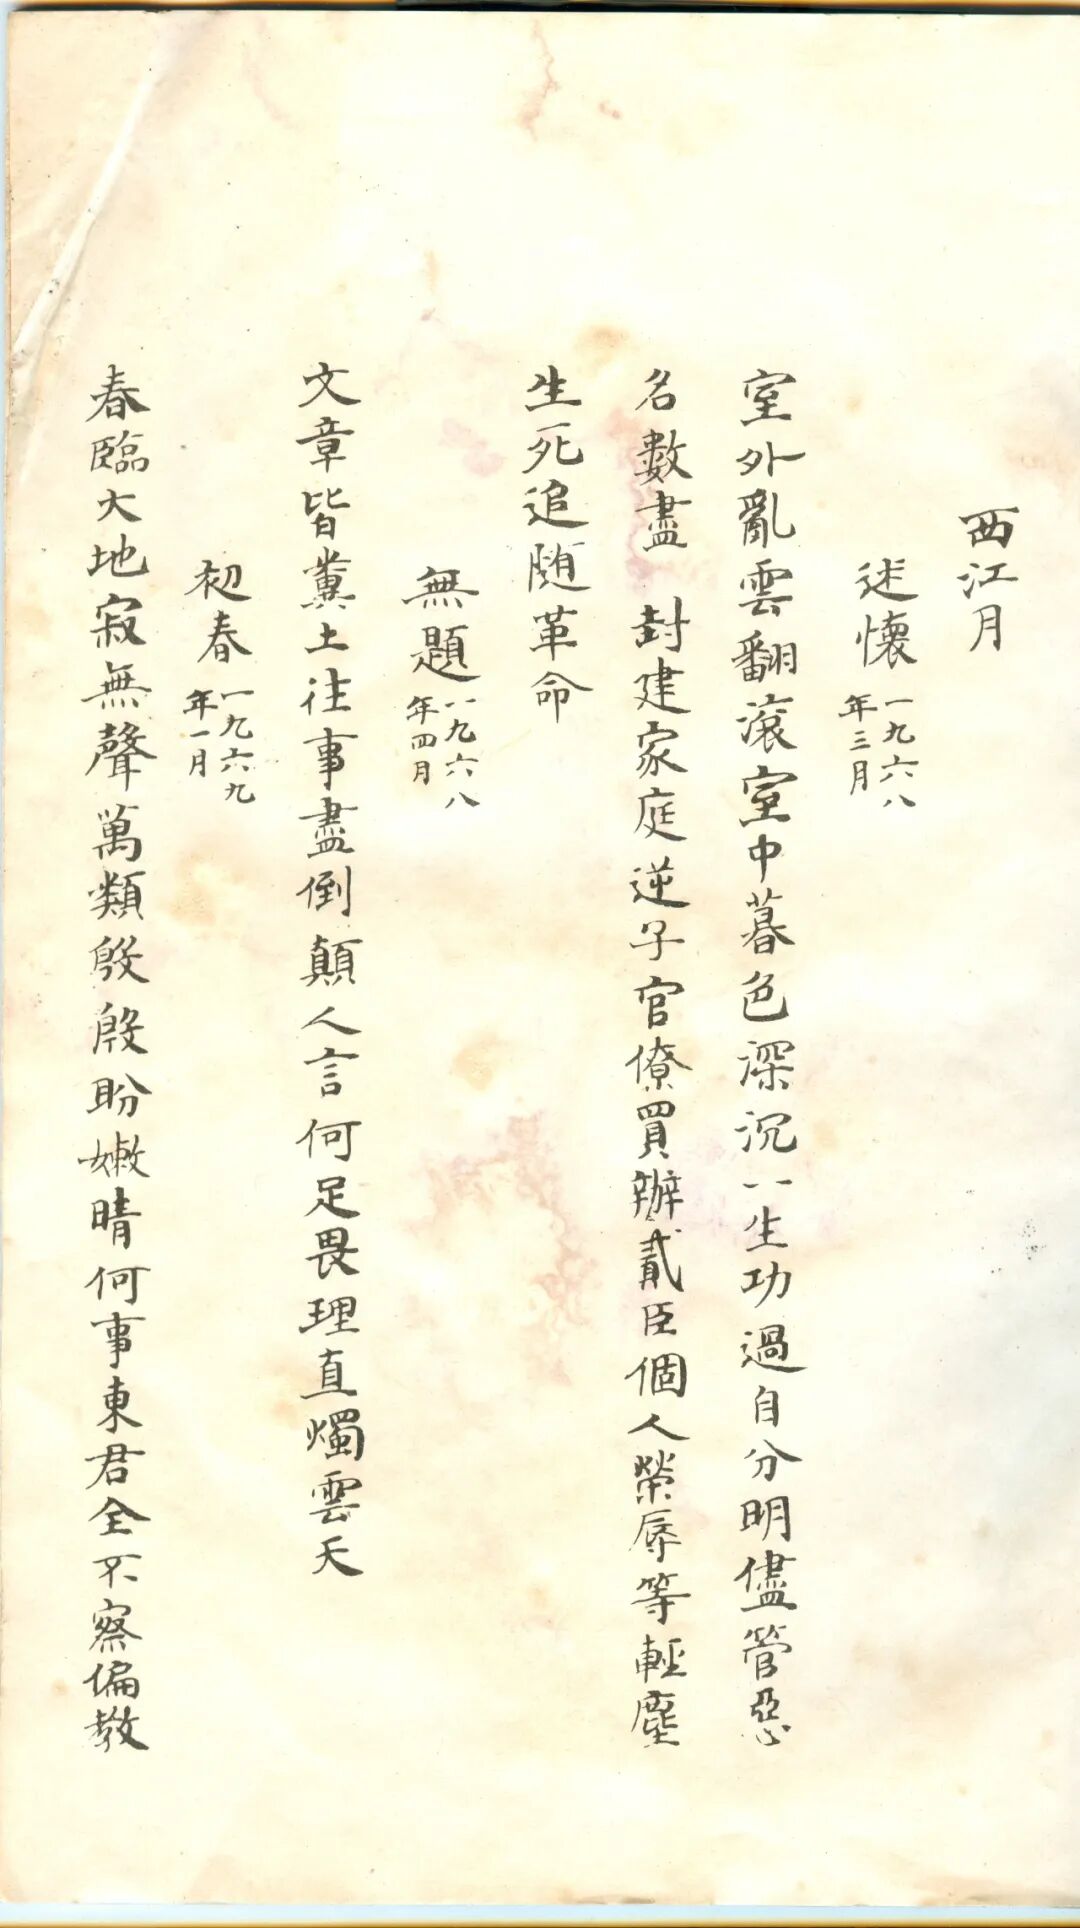 西江月
述懷 一九六八年三月
室外亂雲翻滾室中暮色深沉一生功過自分明儘管惡
名數盡 封建家庭逆子官僚買辦貳臣個人榮辱等輕塵
生死追随革命
無題 一九六八年四月
文章皆糞土往事盡倒顛人言何足畏理直燭雲天
初春 一九六九年一月
春臨大地寂無聲萬類殷殷盼嫩晴何事東君全不察偏教